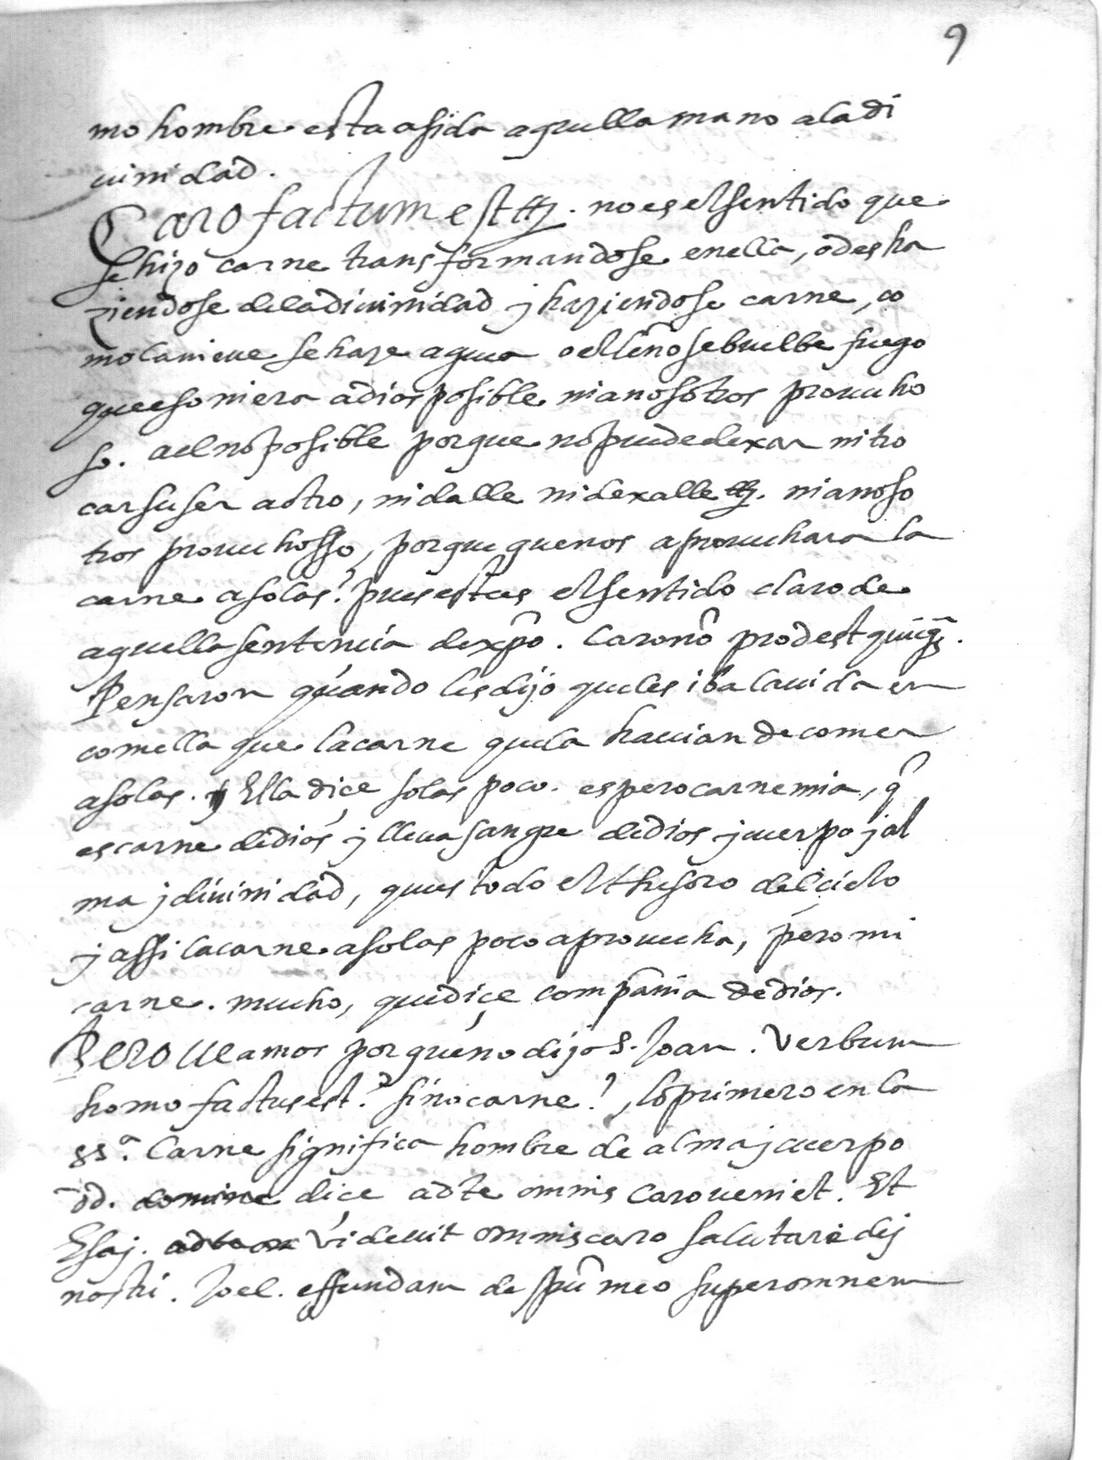 9
mo hombre esta asida aquella mano a la di
uinidad.
Caro factum est &. no es el sentido que
se hizo carne transformandose en ella, o desha
ziendose de la diuinidad j haziendose carne, co
mo la nieue se haze agua o el leño se buelbe fuego
que eso ni era a dios posible ni a nosotros prouecho
so. a el no posible porque no puede dexar ni tro
car su ser a otro, ni dalle ni dexalle &. ni a noso
tros prouechosso, porque que nos aprouechara la
carne a solas? pues este es el sentido claro de
aquella sentencia de xpo. Caro nõ prodest quicq̃.
Pensaron quando les dijo que les iba la uida en
comella que la carne que la hauian de comer
a solas. Ella dice solas poco. es pero carne mia, q̃
es carne de dios j lleua sangre de dios j cuerpo j al
ma j diuinidad, que es todo el thesoro del cielo
j assi la carne a solas poco aprouecha, pero mi
carne. mucho, que dice compañia de dios.
Pero ueamos por que no dijo S. Joan. Verbum
homo factus est? sino carne?, lo primero en la
ss.ª Carne significa hombre de alma j cuerpo
dd. dice ad te omnis caro ueniet. Et
Esaj. videuit omnis caro salutare dej
nostri. Joel. effundam de spũ meo super omnem